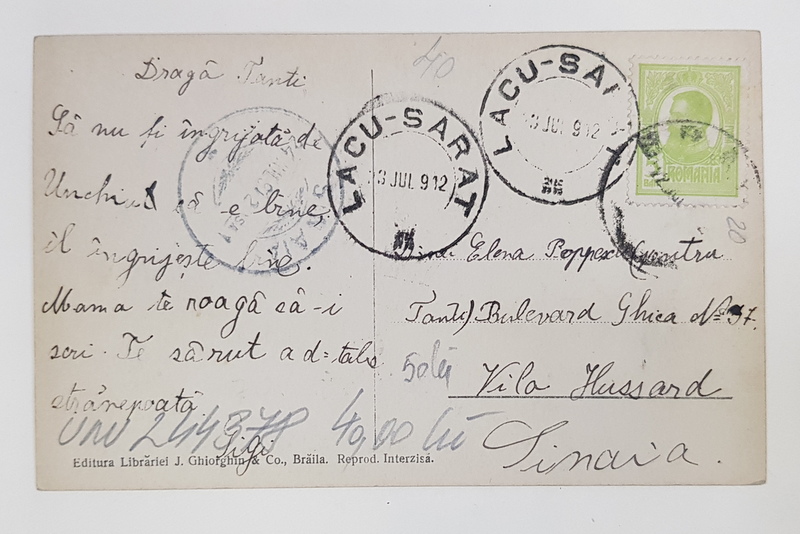 Dragă Tanti
Să nu fi îngrijată de
Unchiul că e bine.
îl îngrijește bine.
Mama te roagă să-i
scri. Te sărut a d-tale
strănepoată
Gigi
UNU 244378 40,00 lei
Editura Librăriei J. Ghiorghiu & Co., Brăila. Reprod. Interzisa.
40
LACU-SARAT
23 JUL 912
LACU-SARAT
23 JUL 912
ROMANIA
20
Elena Poppescu (pentru
Tanti) Bulevard Ghica No 37.
50 lei
Vila Hussard
Sinaia.